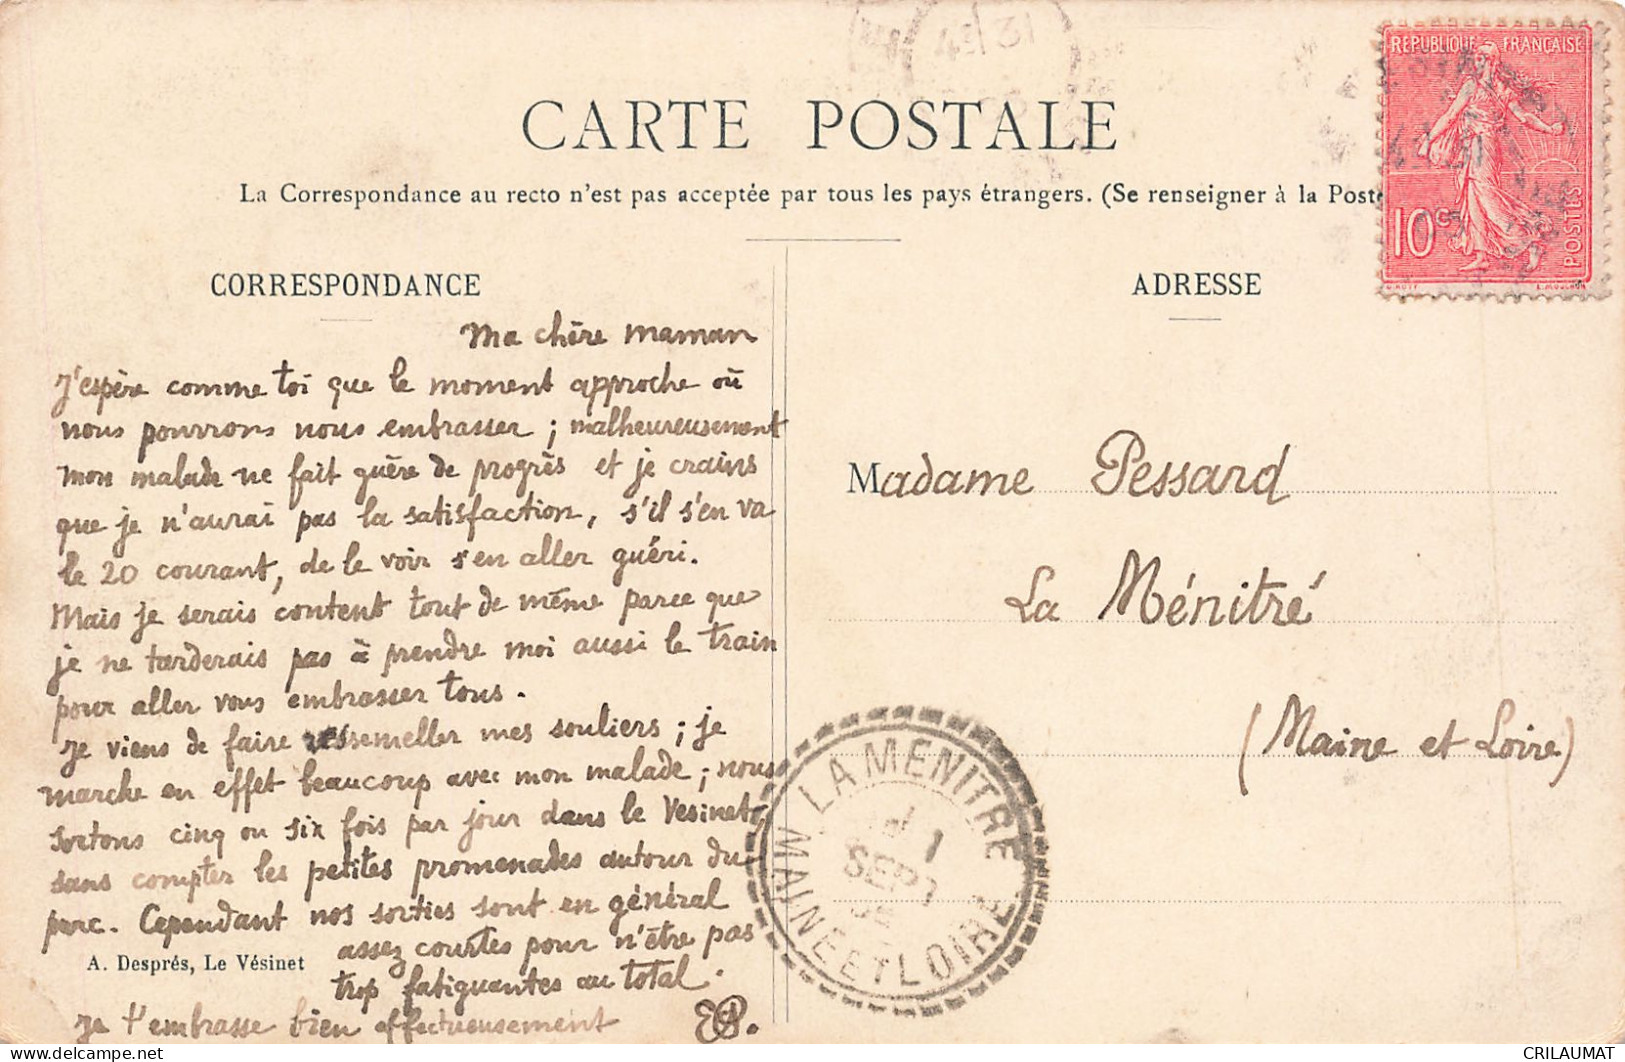 CARTE POSTALE
La Correspondance au recto n'est pas acceptée par tous les pays étrangers. (Se renseigner à la Poste
REPUBLIQUE FRANÇAISE
10 c
POSTES
CORRESPONDANCE
ADRESSE
Ma chère maman
J'espère comme toi que le moment approche où
nous pourrons nous embrasser ; malheureusement
mon malade ne fait guère de progrès et je crains
que je n'aurai pas la satisfaction, s'il s'en va
le 20 courant, de le voir s'en aller guéri.
Mais je serais content tout de même parce que
je ne tarderais pas à prendre moi aussi le train
pour aller vous embrasser tous.
Je viens de faire ressemeller mes souliers ; je
marche en effet beaucoup avec mon malade ; nous
sortons cinq ou six fois par jour dans le Vésinet,
sans compter les petites promenades autour du
parc. Cependant nos sorties sont en général
assez courtes pour n'être pas
trop fatiguantes au total.
Je t'embrasse bien affectueusement
A. Després, Le Vésinet
Madame Pessard
La Ménitré
(Maine et Loire)
LA MENITRE
1
SEPT
MAINE ET LOIRE
CRILAUMAT